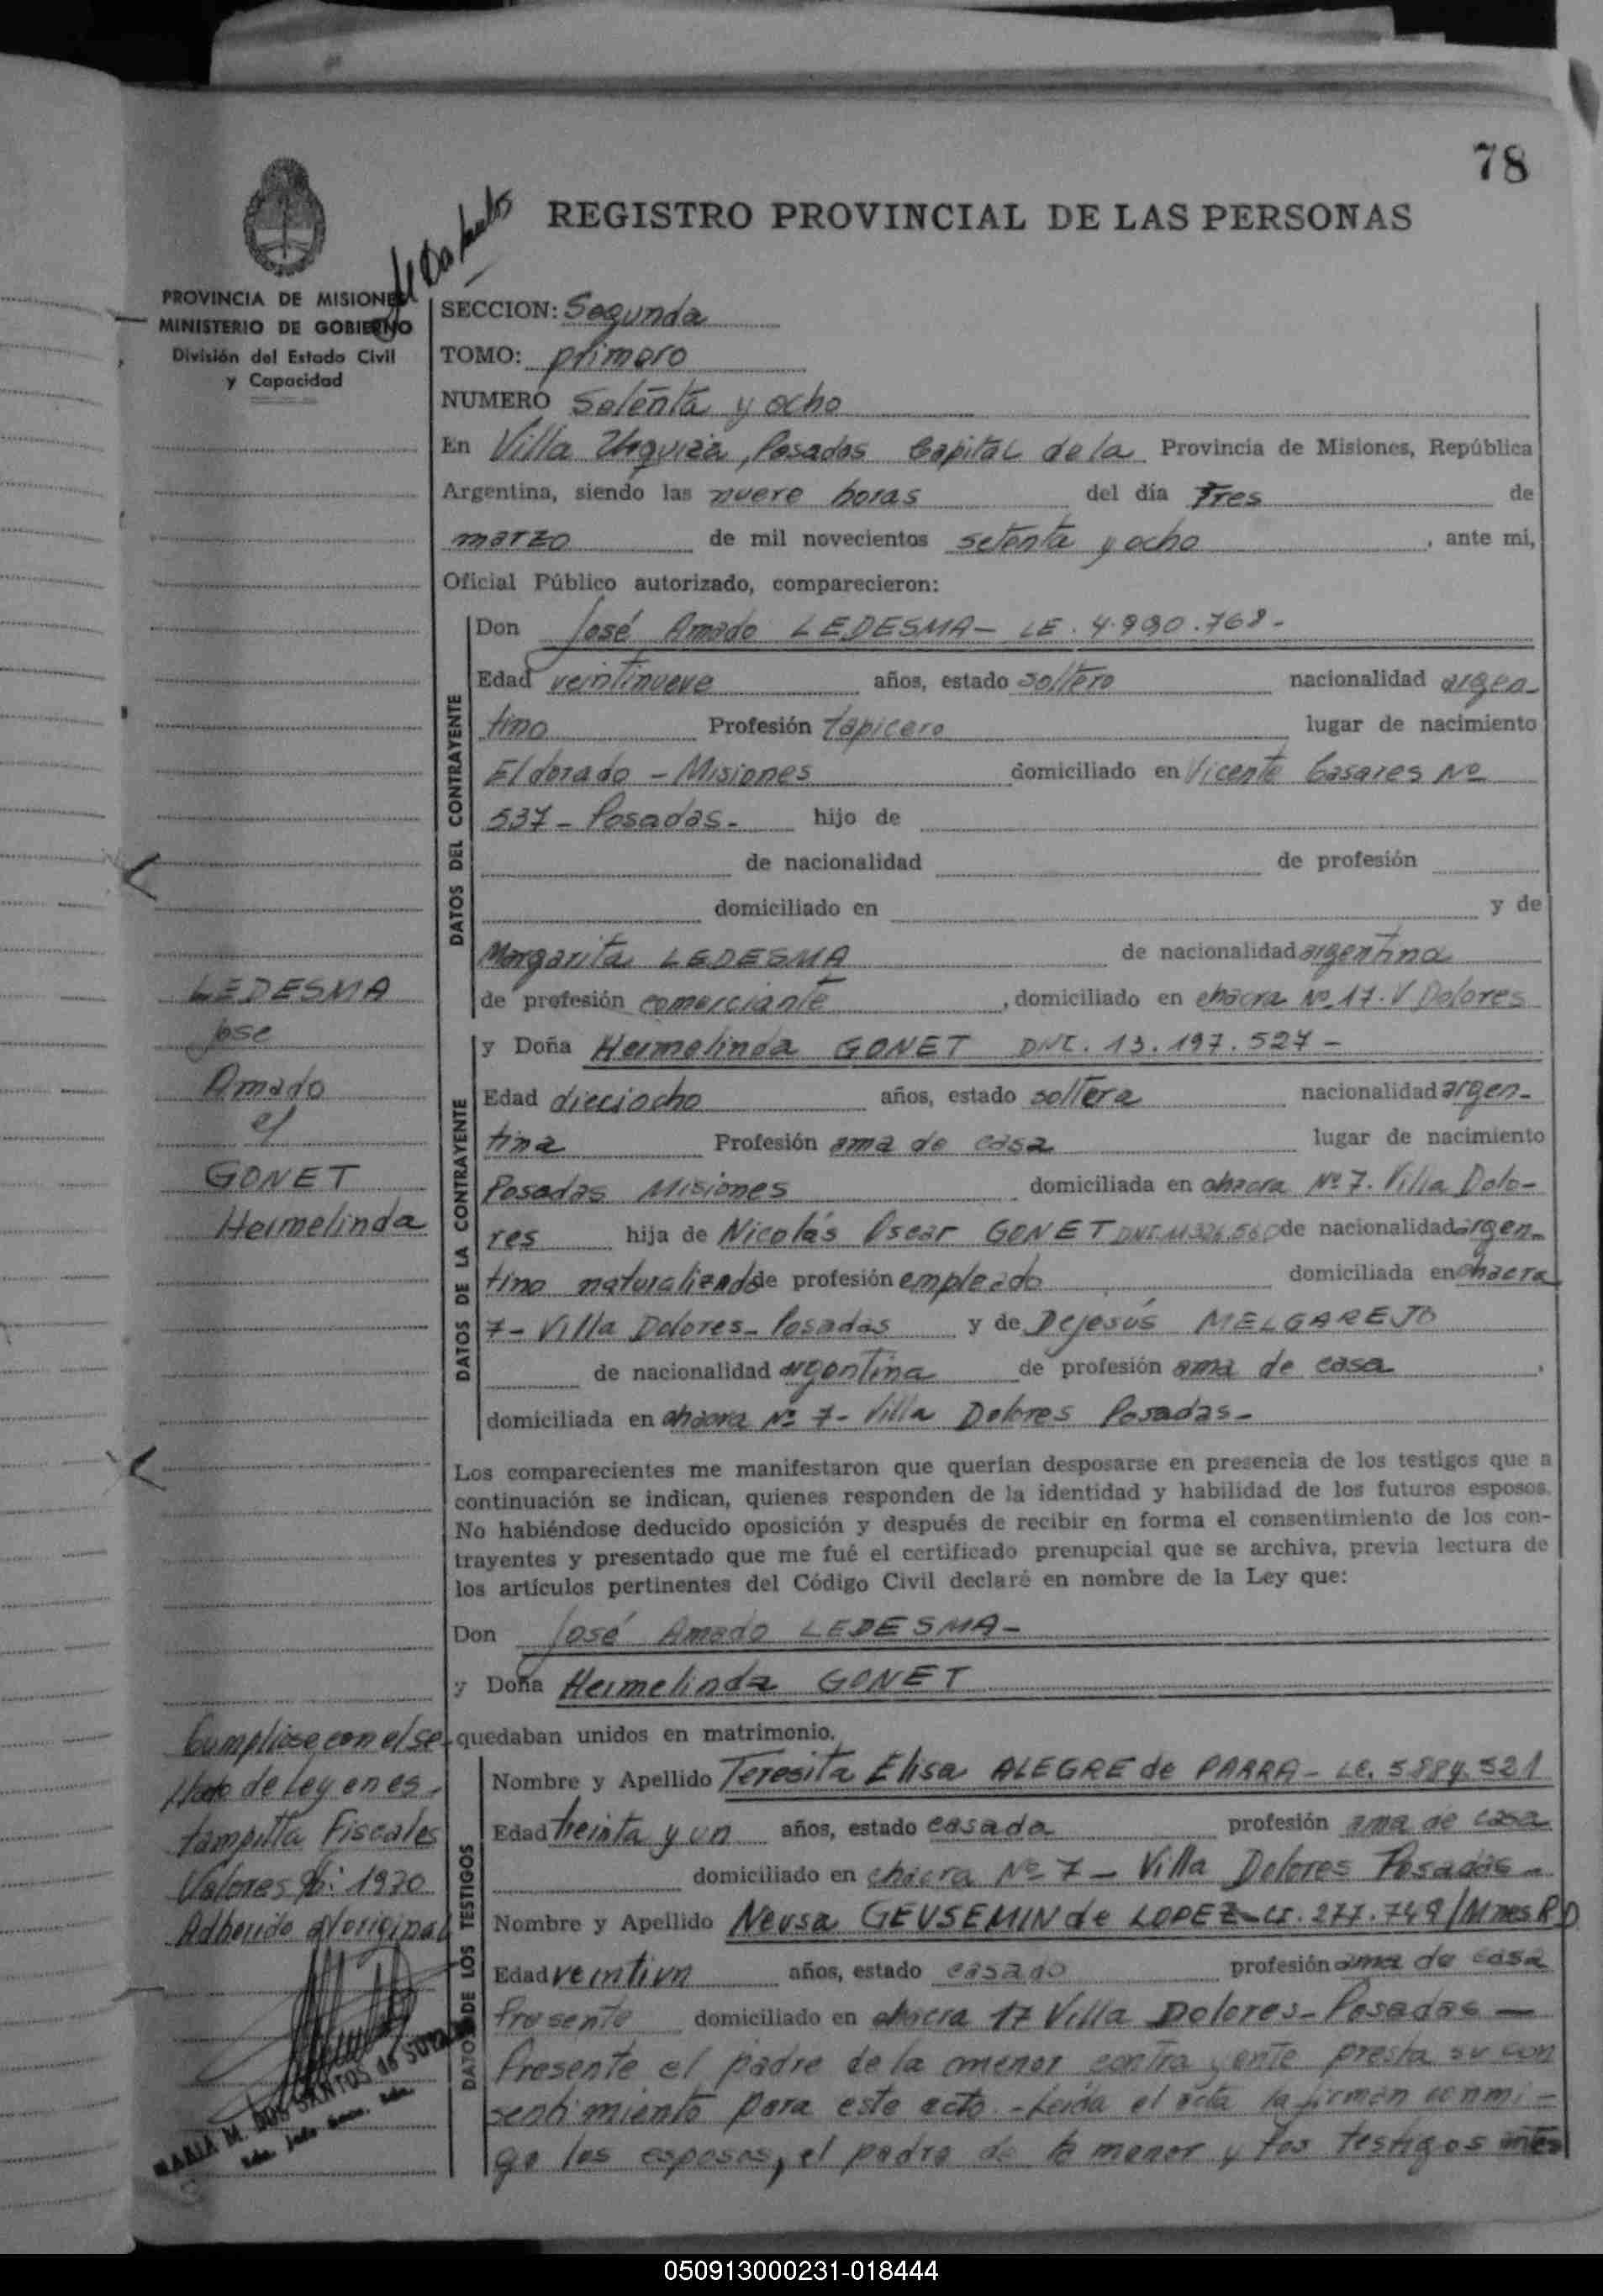 78
REGISTRO PROVINCIAL DE LAS PERSONAS
PROVINCIA DE MISIONES
MINISTERIO DE GOBIERNO
División del Estado Civil
y Capacidad
SECCION: Segunda
TOMO: primero
NUMERO Setenta y ocho
En Villa Urquiza, Posadas Capital de la Provincia de Misiones, República
Argentina, siendo las nueve horas del día Tres de
marzo de mil novecientos setenta y ocho, ante mi,
Oficial Público autorizado, comparecieron:
DATOS DEL CONTRAYENTE
Don José Amado LEDESMA- LE. 4.990.768-
Edad veintinueve años, estado soltero nacionalidad argen-
tino Profesión tapicero lugar de nacimiento
Eldorado - Misiones domiciliado en Vicente Casares No
537 - Posadas- hijo de
de nacionalidad de profesión
domiciliado en y de
Margarita LEDESMA de nacionalidad argentina
de profesión comerciante, domiciliado en chacra No 17. V Dolores
LEDESMA
Jose
Amado
GONET
Hermelinda
DATOS DE LA CONTRAYENTE
y Doña Hermelinda GONET DNI. 13.197.527-
Edad dieciocho años, estado soltera nacionalidad argen-
tina Profesión ama de casa lugar de nacimiento
Posadas Misiones domiciliada en chacra No 7. Villa Dolo-
res hija de Nicolás Oscar GONET DNI. 11.326.560 de nacionalidad argen-
tino naturalizado de profesión empleado domiciliada en chacra
7- Villa Dolores- Posadas y de Dejesús MELGAREJO
de nacionalidad argentina de profesión ama de casa,
domiciliada en chacra No 7- Villa Dolores Posadas-
Los comparecientes me manifestaron que querían desposarse en presencia de los testigos que a
continuación se indican, quienes responden de la identidad y habilidad de los futuros esposos.
No habiéndose deducido oposición y después de recibir en forma el consentimiento de los con-
trayentes y presentado que me fué el certificado prenupcial que se archiva, previa lectura de
los artículos pertinentes del Código Civil declaré en nombre de la Ley que:
Don José Amado LEDESMA-
y Doña Hermelinda GONET
quedaban unidos en matrimonio.
Cumpliose con el se-
llado de Ley en es-
tampilla Fiscales
Valores 1970
Adherido al original
MARIA M. DOS SANTOS de
DATOS DE LOS TESTIGOS
Nombre y Apellido Teresita Elisa ALEGRE de PARRA- LC. 5884.521
Edad treinta y un años, estado casada profesión ama de casa
domiciliado en chacra No 7 - Villa Dolores Posadas-
Nombre y Apellido Neusa GEUSEMIN de LOPEZ- CI. 277.749/Mnes R D
Edad veintiun años, estado casado profesión ama de casa
Presente domiciliado en chacra 17 Villa Dolores- Posadas -
Presente el padre de la menor contrayente presta su con
sentimiento para este acto.- Leída el acta la firman conmi-
go los esposos, el padre de la menor y los testigos antes
050913000231-018444